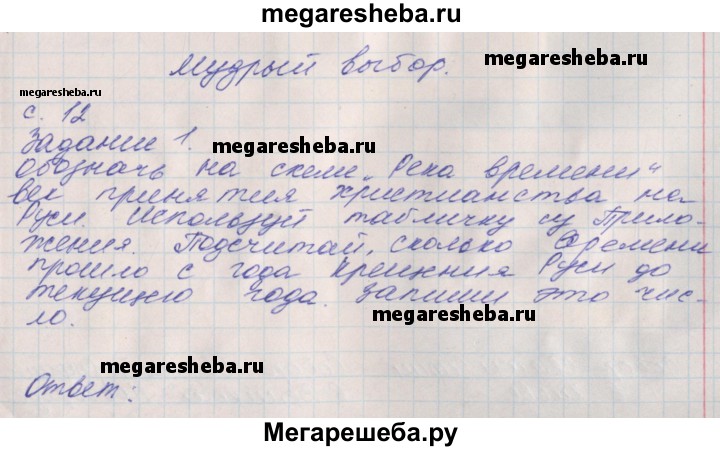 megaresheba.ru
Мудрый выбор.
megaresheba.ru
megaresheba.ru
с. 12
Задание 1.
megaresheba.ru
Обозначь на схеме „Река времени“
век принятия христианства на
Руси. Используй табличку су Прило-
жения. Подсчитай, сколько времени
прошло с года крещения Руси до
текущего года. Запиши это чис-
ло.
megaresheba.ru
megaresheba.ru
Ответ:
Мегарешеба.ру